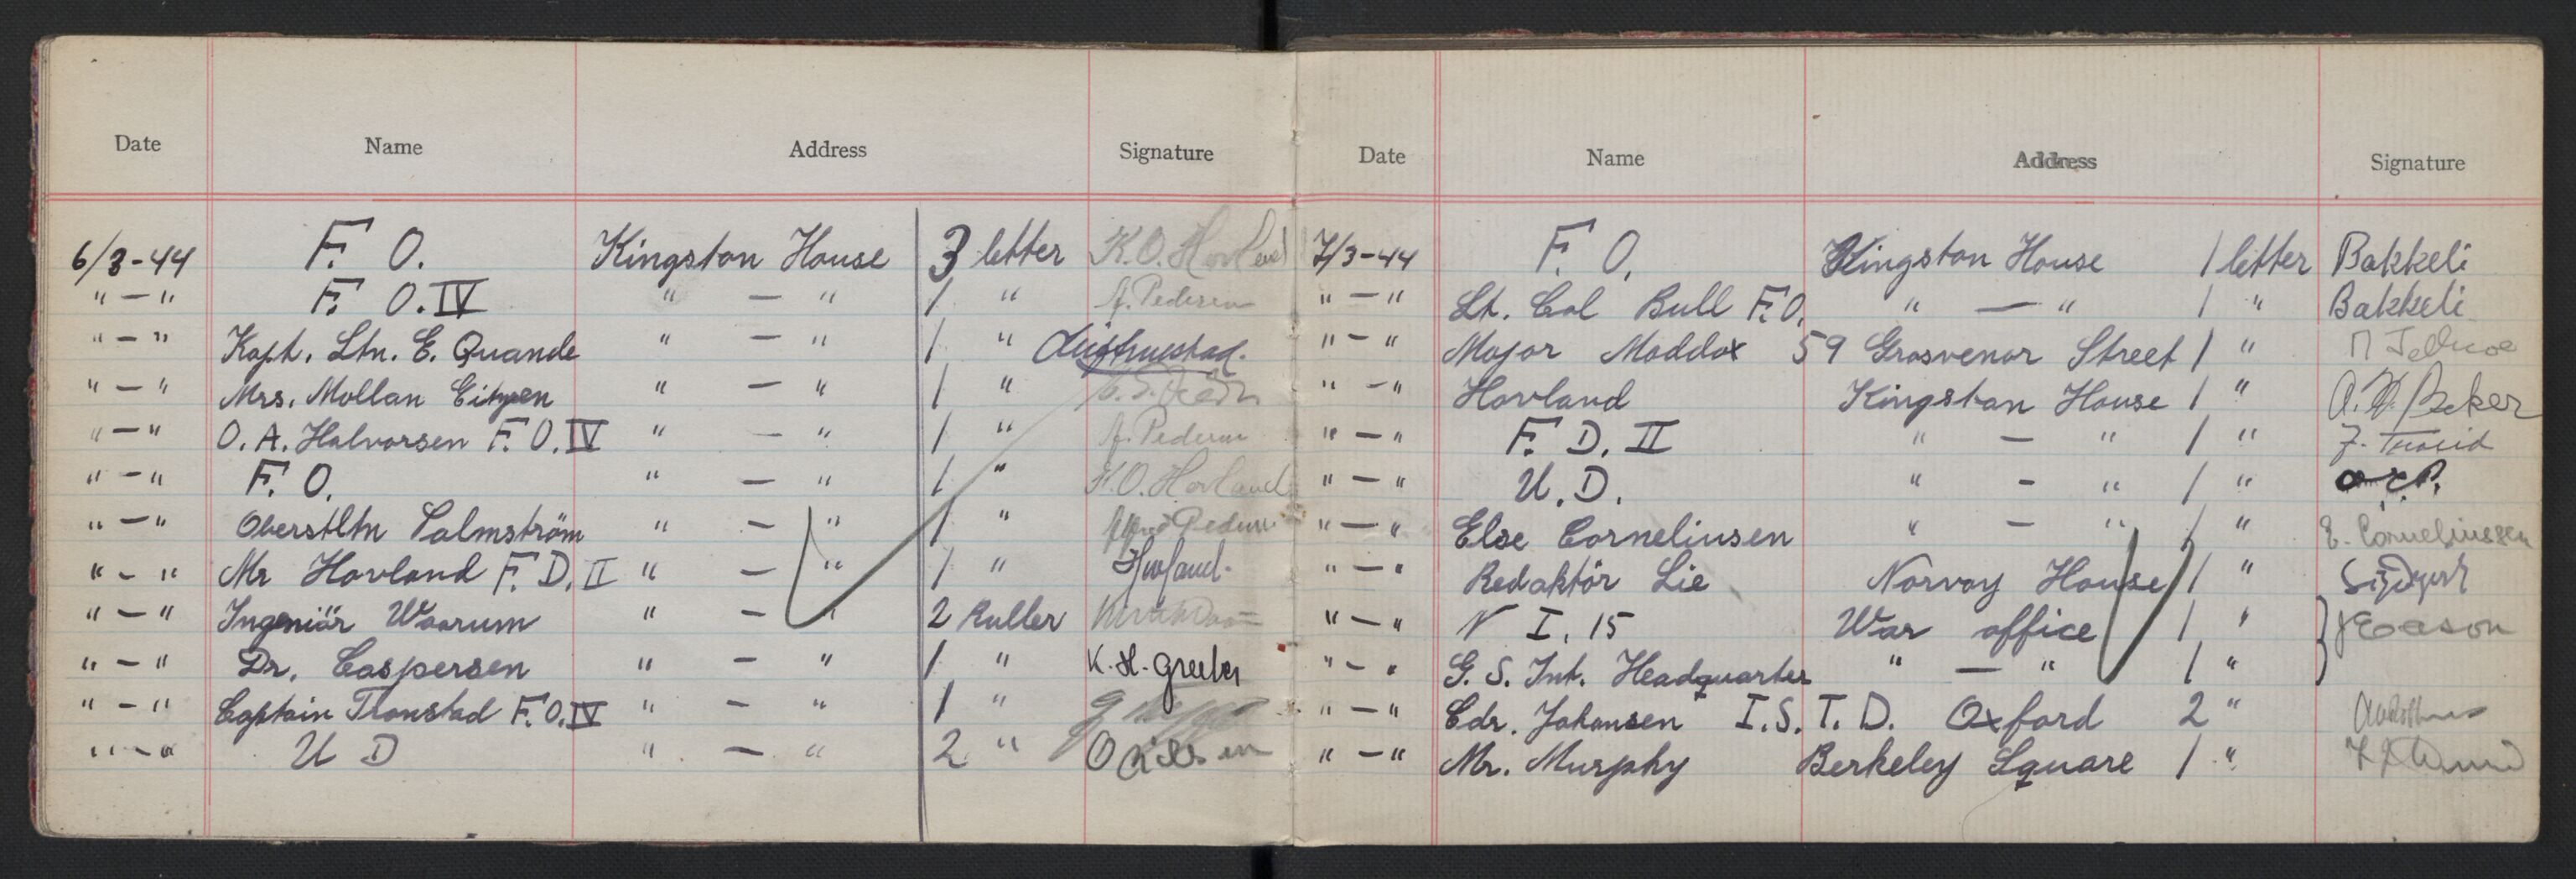 Date Name Address Signature
6/3-44 F. O. Kingston House 3 letter K.O. Hovland
" — " F. O. IV " — " 1 " A. Pedersen
" — " Kapt. Ltn. E. Quande " — " 1 "
" — " Mrs. Mollan " — " 1 "
" — " O. A. Halvorsen F. O. IV " — " 1 " A. Pedersen
" — " F. O. " — " 1 " K.O. Hovland
" — " Oberstltn Palmström " — " 1 " Pedersen
" - " Mr Hovland F. D. II " — " 1 " Hovland.
" — " Ingeniör Waarum " — " 2 Ruller
" — " Dr. Caspersen " — " 1 " K. H. Greeler
" — " Captain Tronstad F. O. IV " — " 1 "
" — " U D " — " 2 " O Nilsen
Date Name Address Signature
7/3-44 F. O. Kingston House 1 letter Bakkeli
" — " Lt. Col Bull F.O. " — " 1 " Bakkeli
" — " Major Maddox 59 Grosvenor Street 1 "
" — " Hovland Kingston House 1 " Beker
" — " F. D. II " — " 1 "
" — " U. D. " — " 1 "
" — " Else Corneliusen " — " 1 " E. Corneliussen
" — " Redaktör Lie Norway House 1 "
" — " N I. 15 War office 1 " Eason
" — " G. S. Int. Headquarter " — " 1 "
" — " Cdr. Johansen I.S.T.D. Oxford 2 "
" — " Mr. Murphy Berkeley Square 1 "